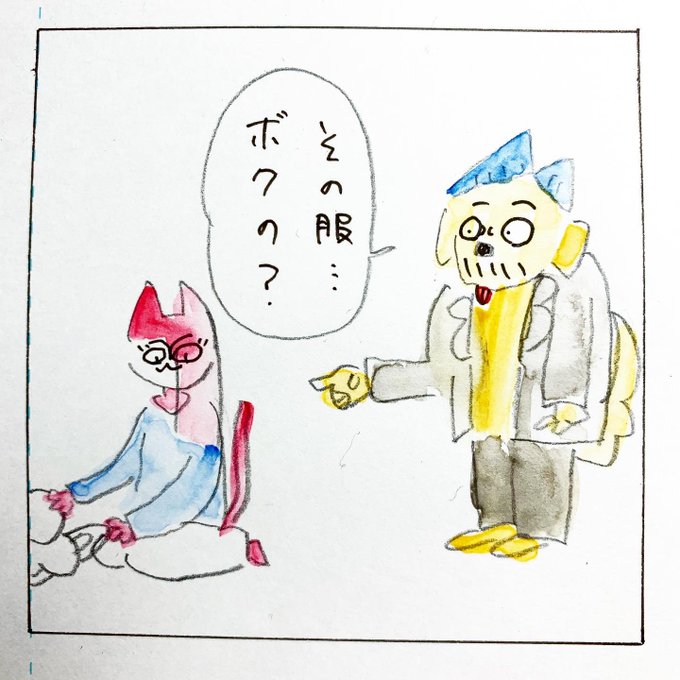 その服…
ボクの？